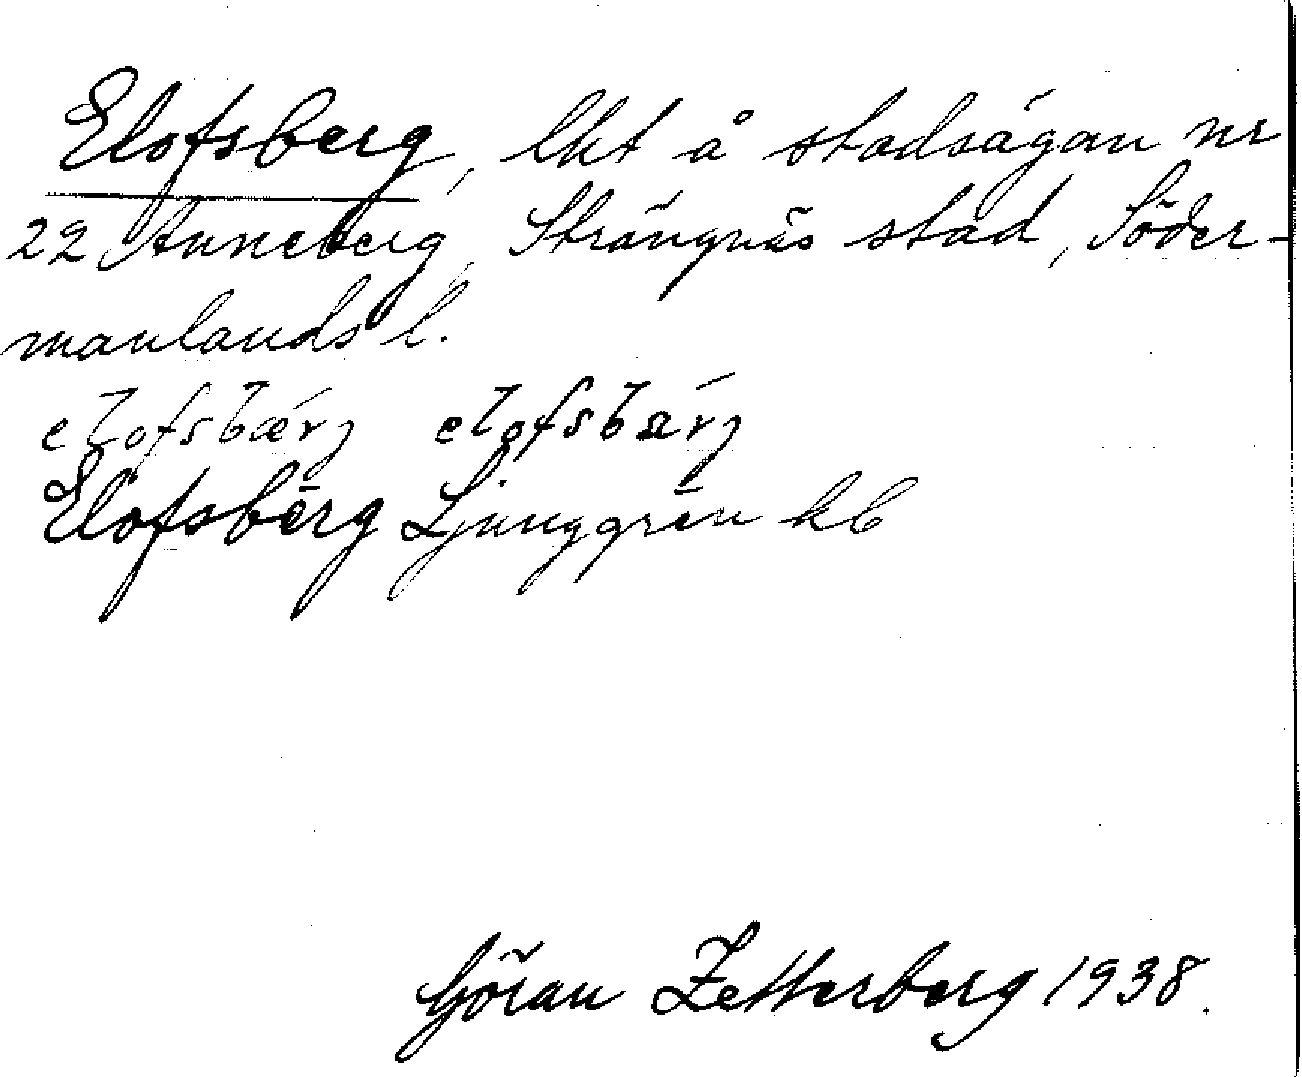 Elofsberg, lht å stadsägan nr
22 Anneberg, Strängnäs stad, Söder-
manlands l.
elofsbærj elofsbarj
Elofsberg Ljunggren kb
Göran Zetterberg 1938.